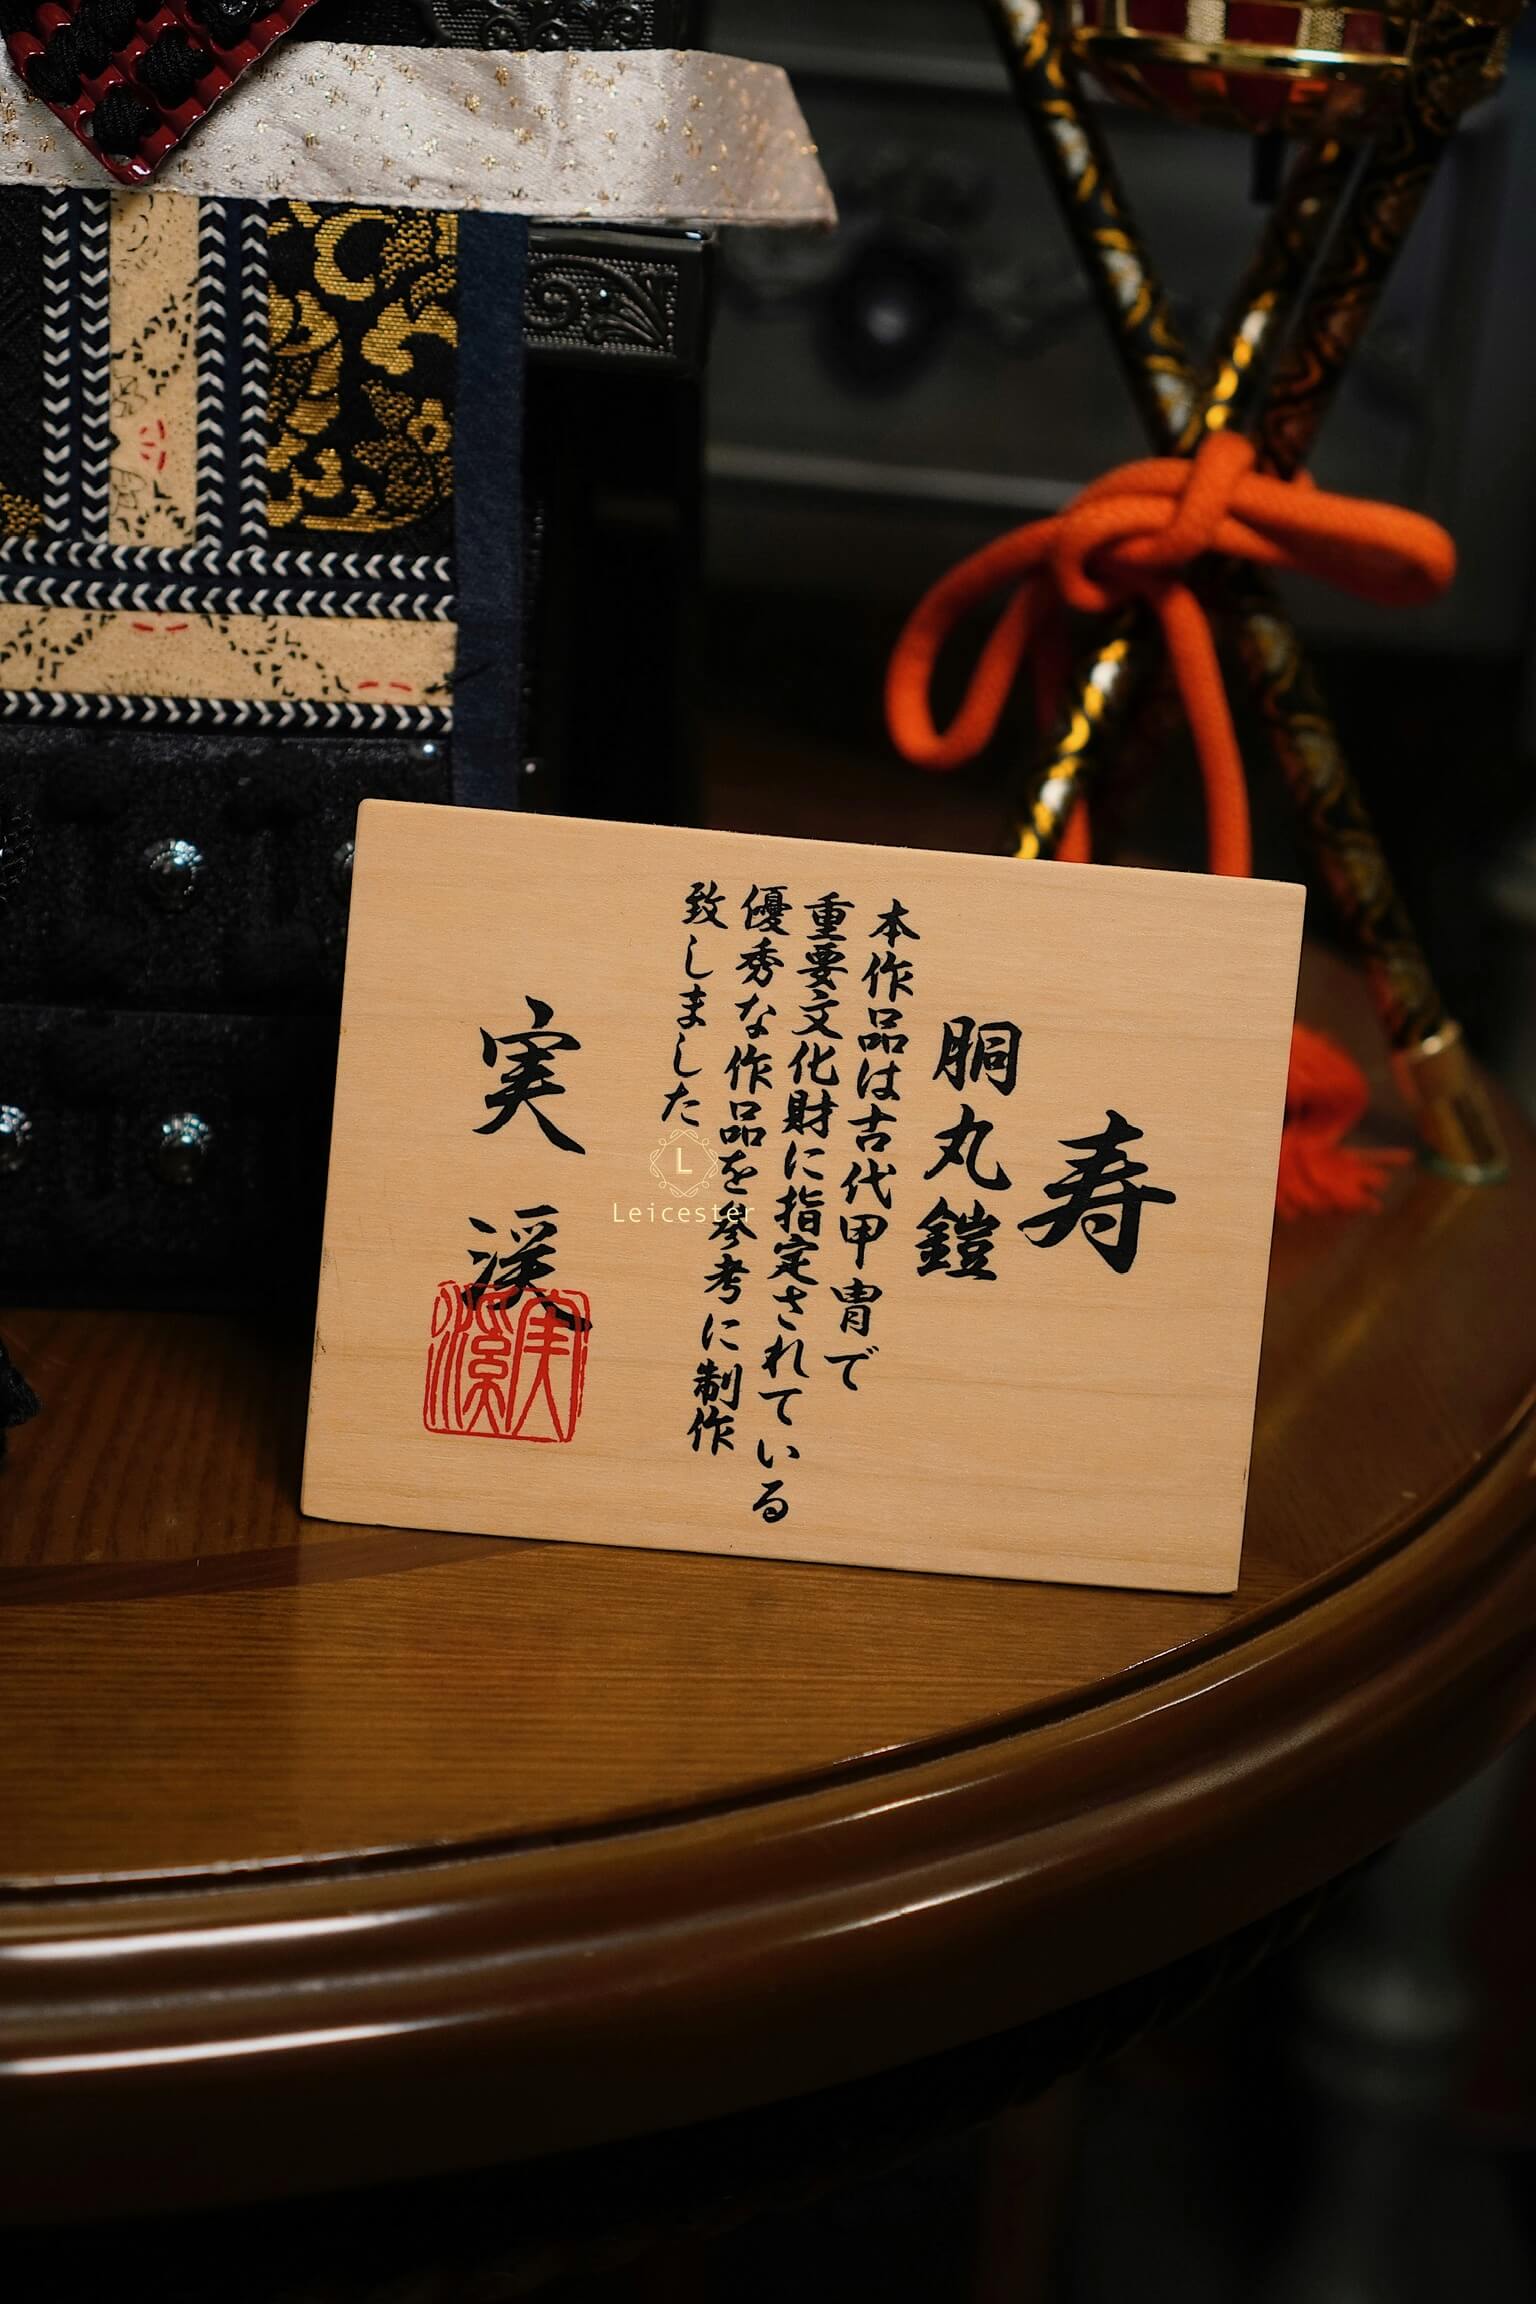 寿
胴丸鎧
本作品は古代甲冑で
重要文化財に指定されている
優秀な作品を参考に制作
致しました
実渓
実溪
L
Leicester